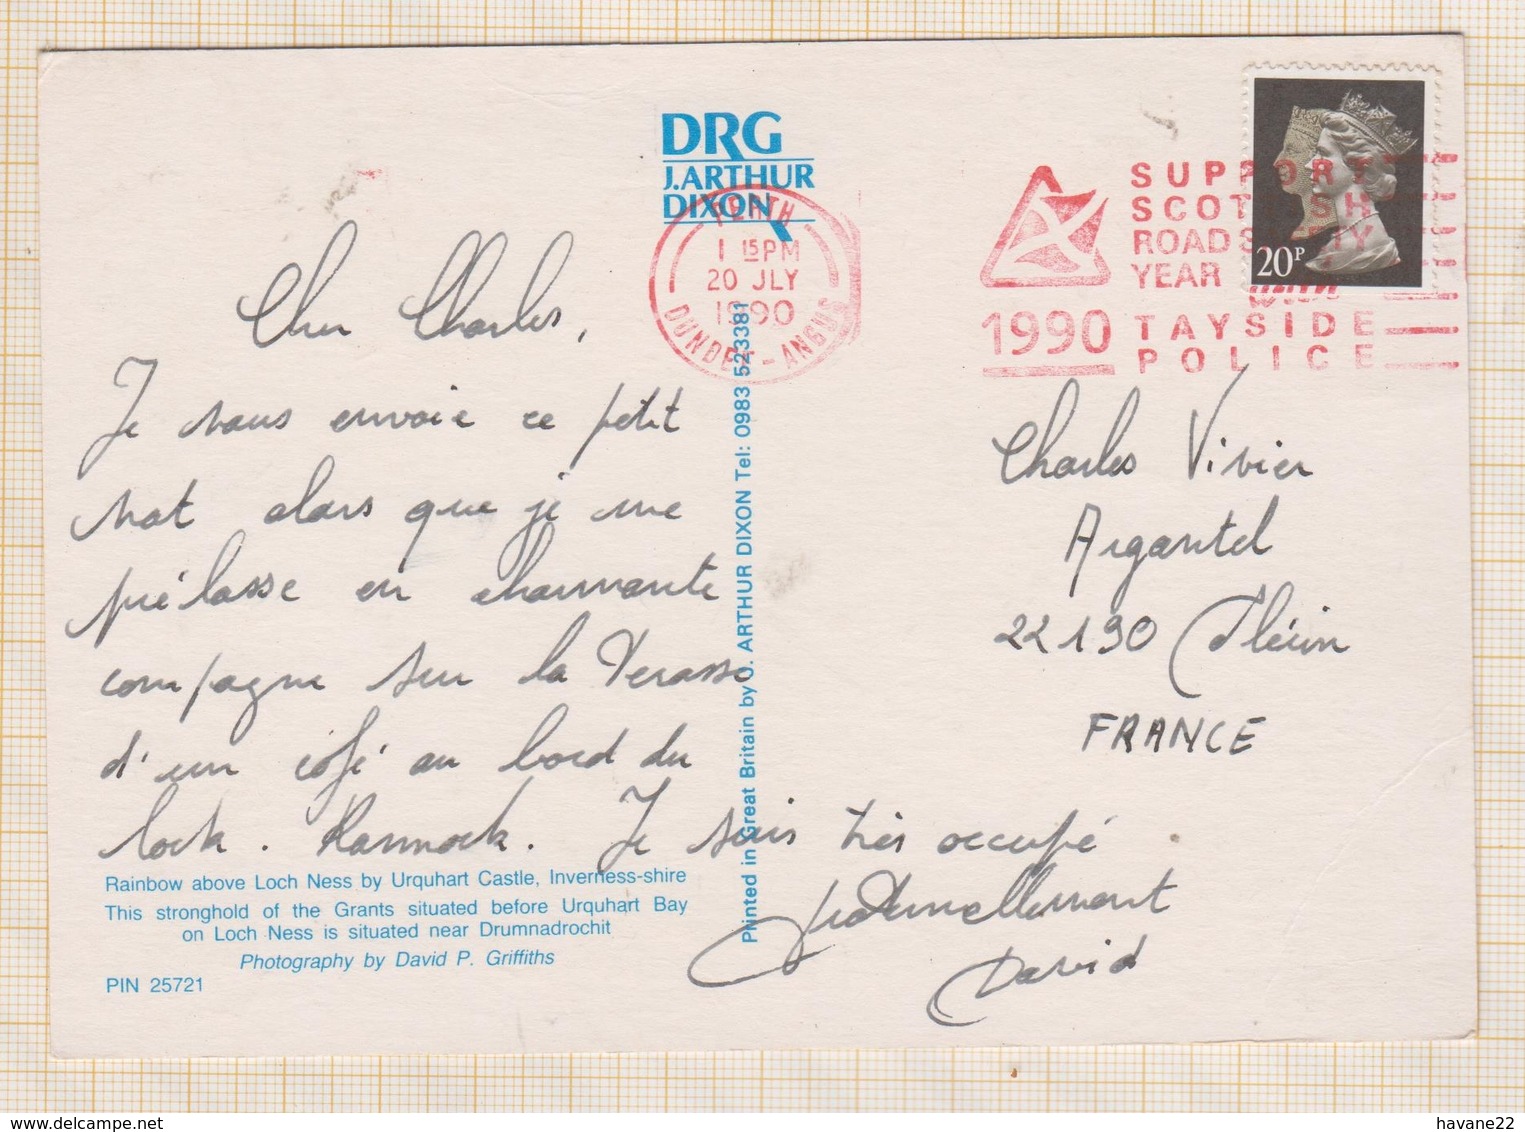 DRG
J.ARTHUR
DIXON
PERTH
1 15PM
20 JLY
1990
DUNDEE-ANGUS
SUPPORT
SCOTTISH
ROAD SAFETY
YEAR with
1990 TAYSIDE
POLICE
20P
Cher Charles,
Je vous envoie ce petit
mot alors que je me
prélasse en charmante
compagnie sur la terasse
d'un café au bord du
lock. Rannock. Je suis très occupé
fraternellement
David
Charles Vivier
Argantel
22190 Plérin
FRANCE
Printed in Great Britain by J. ARTHUR DIXON Tel: 0983 523381
Rainbow above Loch Ness by Urquhart Castle, Inverness-shire
This stronghold of the Grants situated before Urquhart Bay
on Loch Ness is situated near Drumnadrochit
Photography by David P. Griffiths
PIN 25721
DELCAMPE.NET
havane22